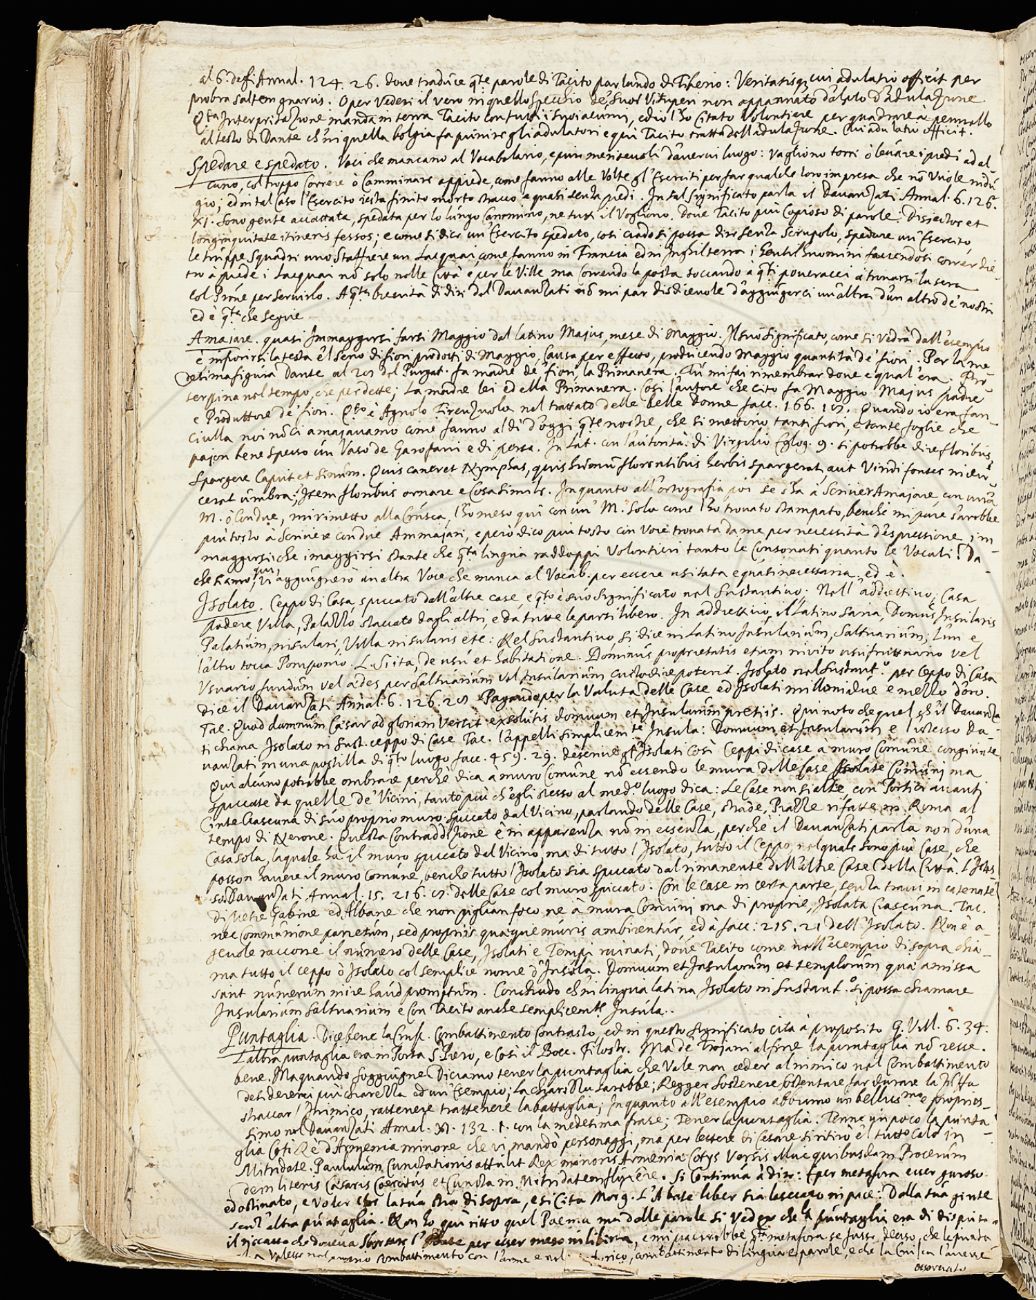 al 6. degl'Annal. 124. 26. dove traduce q.te parole di Tacito parlando di Tiberio: Veritatisq; cui adulatio officit per
probra saltem gnarus. O per Vedersi il vero in quello specchio de' suoi Vituperi non appannato dal fiato d'adulazione
Q.ta Interpretazione manda in terra Tacito con tutti i suoi acumi, ed io l'ho citato Volontiere per quadrare a pennello
al testo di Dante ch'in quella bolgia fa punire gl'adulatori e qui Tacito tratta dell'adulazione. Cui adulatio officit.
Spedare e spedato. Voci che mancano al Vocabolario, e pur meritevoli d'avervi luogo: Vagliono torri ò levare i piedi ad al
cuno, col troppo correre ò camminare appiede, come fanno alle Volte gl'Eserciti per far qualche loro impresa che nō Vuole indu
gio; ed in tal caso l'Esercito resta finito morto stracco e quasi senza piedi. In tal significato parla il Davanzati Annal. 6. 126.
XI. Sono gente accattata, spedata per lo lungo cammino, ne tutti il Vogliono. Dove Tacito più copioso di parole. Disjectos et
longinquitate itineris fessos; e come si dice un Esercito spedato, così credo si possa dir senza scrupolo, spedare un Esercito,
le truppe squadre uno staffiere un Lacquai come fanno in Francia ed in Inghilterra i Gentilhuomini facendosi correr die
tro à piede i Lacquai nō solo nelle Città e per le Ville ma correndo la posta toccando à q.ti poveracci à tornarsi la sera
col Prōe per servirlo. A q.ta brevità di dire del Davanzati nō mi par disdicevole d'aggiugnerci un'altra d'un altro de' nostri
ed è q.ta che segue
Amajare. quasi Immaggiarsi farsi Maggio dal latino Majus, mese di Maggio. Il suo significato, come si vedrà dall'esempio
è infiorirsi la testa e'l seno di fiori prodotti di Maggio. Causa per effetto, producendo Maggio quantità de' fiori. Per la me
desima figura Dante al 28 del Purgat. fa madre de' fiori la Primavera. Tu mi fai rimembrar dove e qual'era. Pro
serpina nel tempo, che perdette; La madre lei ed ella Primavera. Così l'autore che cito fa Maggio Majus padre
e Produttore de' fiori. Q.to è Agnolo Firenzuola nel trattato delle belle donne facc. 166. 18. Quando io era fan
ciulla noi nō ci amajavamo come fanno al dì d'oggi q.te nostre, che si mettono tanti fiori, e tante foglie che
pajon bene spesso un Vaso di Garofani e di persa. In Lat. con l'autorità di Virgilio Eglog. 9. si potrebbe dire floribus
spargere caput et sinum. Quis caneret Nymphas, quis humum florentibus herbis spargeret, aut Viridi fontes indu
ceret umbra; Item floribus ornare e cosa simile. In quanto all'ortografia poi se s'ha à scriver Amajare con un'a
M. ò con due, mi rimetto alla Crusca, l'ho messo qui con un' M. solo come l'ho trovato stampato, benche mi pare sarebbe
più tosto à scriver con due Ammajari, e però dico più tosto con Voce trovata da me per necessità d'espressione, im-
maggiarsi che imaggiarsi stante che q.ta lingua raddoppi Volentieri tanto le Consonati quanto le Vocali. Da-
che siamo qui, vi aggiugnerò un altra Voce che manca al Vocab. per essere usitata e quasi necessaria, ed è
Isolato. Ceppo di Casa spiccato dall'altre case e q.to è suo significato nel sustantivo: Nell'addiettivo, Casa
Podere Villa, Palazzo staccato dagli altri, e da tutte le parti libero. In addiettivo, il latino saria Domus Insularis
Palatium, insulari, Villa insularis etc. Nel sustantivo si dice in Latino Insularium, saltuarium, L'un e
l'altro tocca Pomponio L. si ita, de usu et habitatione. Dominus proprietatis etiam invito usufructuario vel
Usuario fundum vel aedes per saltuarium vel Insularium custodire poterit. Isolato nel sustant.o per ceppo di Casa
dice il Davanzati Annal. 6. 126. 28. Pagando per la Valuta delle Case ed Isolati milioni due e mezzo d'oro.
Tac. Quod damnum Caesar ad gloriam Vertit exsolutis domuum et Insularum pretiis. Qui noto che quel ch'il Davanza
ti chiama Isolato in Sust. ceppo di Case Tac. l'appelli simplicem.te Insula: Domuum et Insularum: e l'istesso Da-
vanzati in una postilla di q.to luogo facc. 459. 29. descrive gl'Isolati così Ceppi di case a muro Comune congiunte
Qui alcuno potrebbe ombrare perche dica a muro Comune nō essendo le mura delle Case Isolate Comuni ma
spiccate da quelle de' Vicini, tanto più ch'egli stesso al med.o luogo dica: Le Case non si alte con Portici avanti
Cinte ciascuna di suo proprio muro spiccato dal Vicino, parlando delle Case, strade, Piazze rifatte in Roma al
tempo di Nerone. Questa Contraddizione è in apparenza nō in essenza, perche il Davanzati parla non d'una
Casa sola, la quale hà il muro spiccato dal Vicino, ma di tutto l'Isolato, tutto il Ceppo, nel quale sono più Case, che
posson havere il muro comune, benche tutto l'Isolato sia spiccato dal rimanente dell'altre Case della Città. L'istes
so Davanzati Annal. 15. 216. 8. delle Case col muro spiccato. Con le Case in certa parte, senza travi in casonate
di Pietre Gabine ed Albane che non piglian foco ne à mura Comuni ma di proprie, Isolata Ciascuna. Tac.
nec communione parietum, sed propriis quaeque muris ambirentur, ed à facc: 215. 21 dell'Isolato. Non è a-
gevole raccorre il numero delle Case, Isolati e Tempi rovinati, dove Tacito come nell'esempio di sopra chia
ma tutto il ceppo ò Isolato col semplice nome d'Insula. Domuum et Insularum et templorum quae amissa
sunt numerum inire haud promptum. Concludo ch'in lingua latina Isolato in sustant.o si possa chiamare
Insularium saltuarium e con Tacito anche semplicem.te Insula.
Puntaglia. Dice bene la Crus. Combattimento Contrasto, ed in questo significato cita à proposito G. Vill. 6. 34.
L'altra puntaglia era in Porta S. Piero, e così il Bocc. Filostr. Ma de' Trojani al fine la puntaglia nō resse
bene. Ma quando soggiugne Diciamo tener la puntaglia che Vale non ceder al nimico nel Combattimento
desidererei più chiarezza ed un Esempio; la chiarezza sarebbe; Regger sostenere sostentare far durare la Zuffa
straccar l'Inimico, rattenere trattenere la battaglia; In quanto all'esempio abbiamo un bellissimo e propries-
simo nel Davanzati Annal. XI. 132. 1. con la medesima frase; Tener la puntaglia. Tenne un poco la punta-
glia Coti Rè d'Armenia minore che vi mandò personaggi, ma per lettere di Cesare s'intinò e tutto calò in
Mitridate. Paululum Cunctationis attulit Rex minoris Armeniae Cotys Versis illuc quibusdam Procerum
dein literis Caesaris coercitus et cuncta in Mitridatem fluxere. Si Continua à dire: E per metafora esser guroso
ed ostinato, e Voler che la sua stia di sopra, e si cita Morg. L'Abate liber sia lasciato in pace: Dalla sua gente
senz'altra puntaglia. Non ho qui citto quel Poema, ma dalle parole si vede che la puntaglia era di disputa